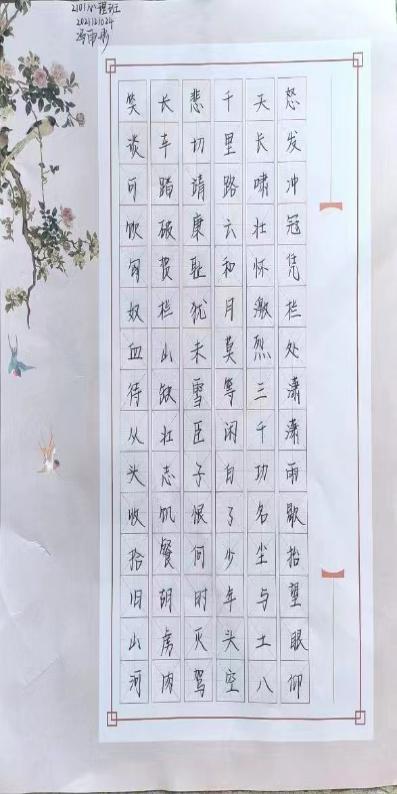 2021121024
怒发冲冠凭栏处潇潇雨歇抬望眼仰
天长啸壮怀激烈三千功名尘与土八
千里路云和月莫等闲白了少年头空
悲切靖康耻犹未雪臣子恨何时灭驾
长车踏破贺栏山缺壮志饥餐胡虏肉
笑谈可饮匈奴血待从头收拾旧山河